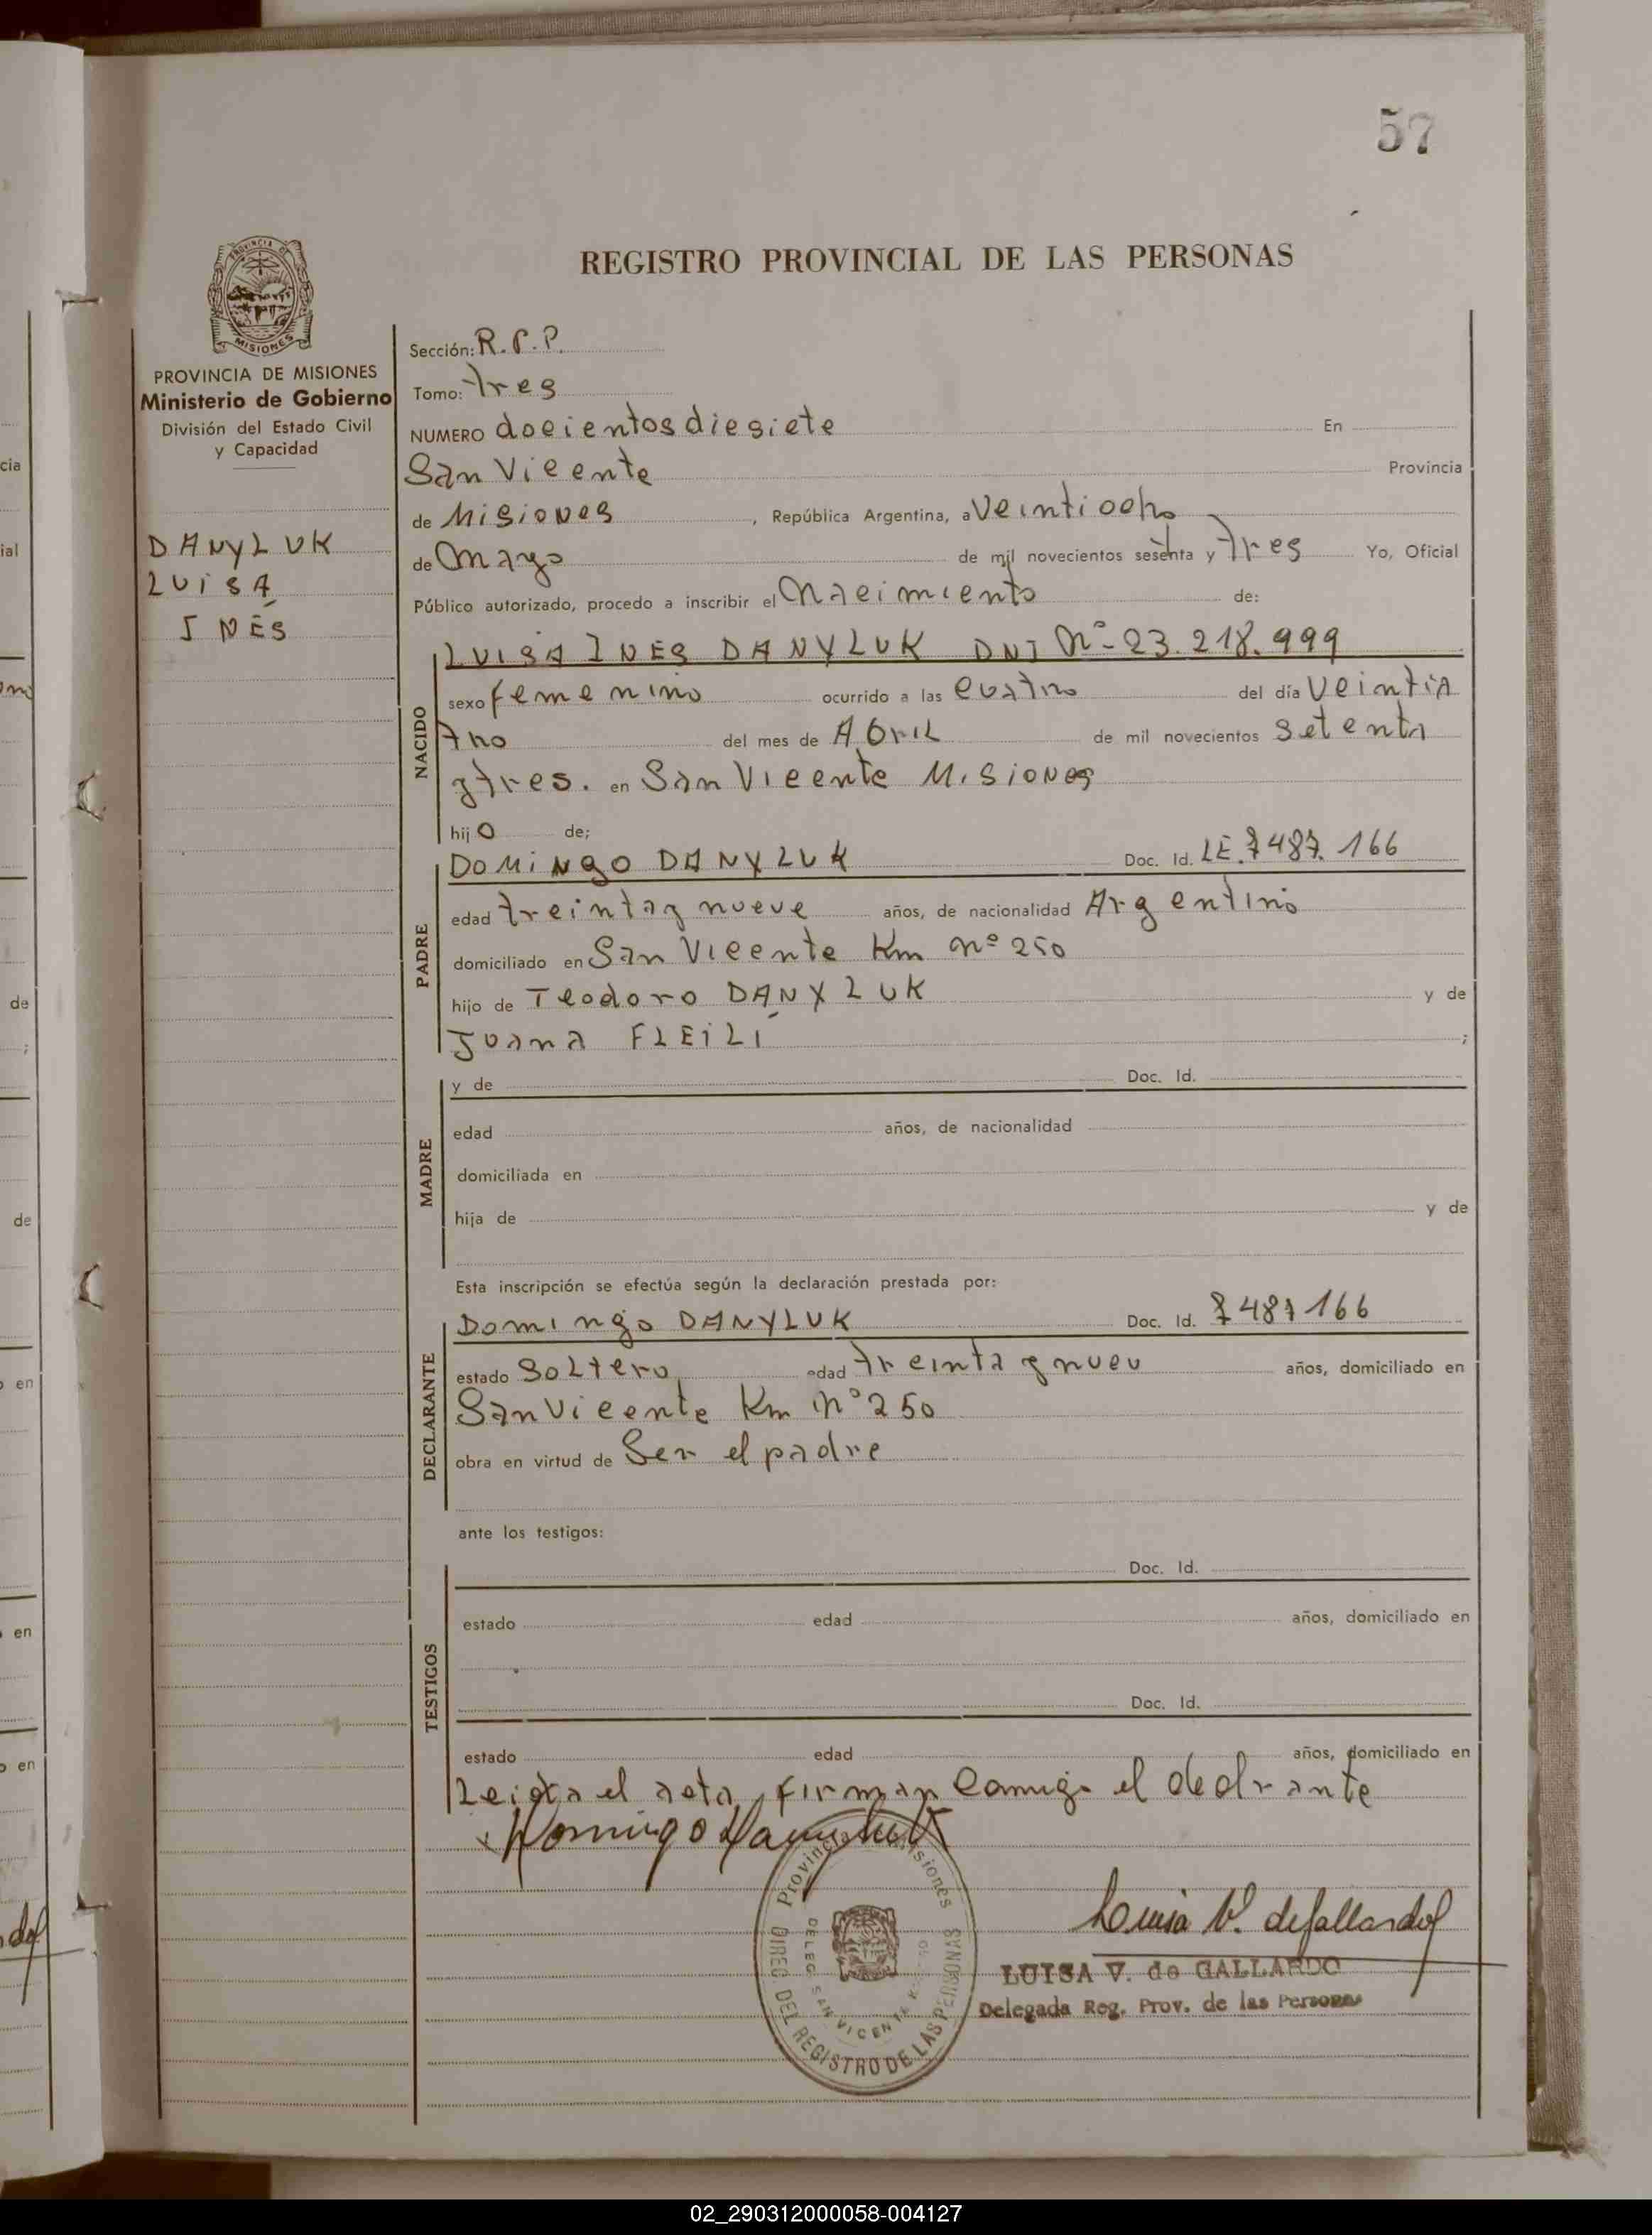 57
REGISTRO PROVINCIAL DE LAS PERSONAS
PROVINCIA DE MISIONES
Ministerio de Gobierno
División del Estado Civil
y Capacidad
DANYLUK
LUISA
INÉS
Sección: R.P.P.
Tomo: tres
NUMERO docientos diesiete En
San Vicente Provincia
de Misiones, República Argentina, a Veintiocho
de Mayo de mil novecientos sesenta y tres Yo, Oficial
Público autorizado, procedo a inscribir el Nacimiento de:
NACIDO
LUISA INES DANYLUK DNI Nº 23.218.999
sexo femenino ocurrido a las cuatro del día Veinticua
tro del mes de Abril de mil novecientos setenta
y tres. en San Vicente Misiones
hijo de;
PADRE
DOMINGO DANYLUK Doc. Id. LE. 7487.166
edad treinta y nueve años, de nacionalidad Argentino
domiciliado en San Vicente Km nº 250
hijo de Teodoro DANYLUK y de
Juana FLEILÍ ;
MADRE
y de Doc. Id.
edad años, de nacionalidad
domiciliada en
hija de y de
Esta inscripción se efectúa según la declaración prestada por:
DECLARANTE
Domingo DANYLUK Doc. Id. 7487166
estado Soltero edad treinta y nuev años, domiciliado en
San Vicente Km nº 250
obra en virtud de Ser el padre
ante los testigos:
TESTIGOS
Doc. Id.
estado edad años, domiciliado en
Doc. Id.
estado edad años, domiciliado en
Leida el acta, firman
Domingo Danyluk
Provincia Misiones
DIREC. DEL REGISTRO DE LAS PERSONAS
DELEG. SAN VICENTE
Luisa V. de Gallardo
LUISA V. de GALLARDO
Delegada Reg. Prov. de las Personas
02_290312000058-004127